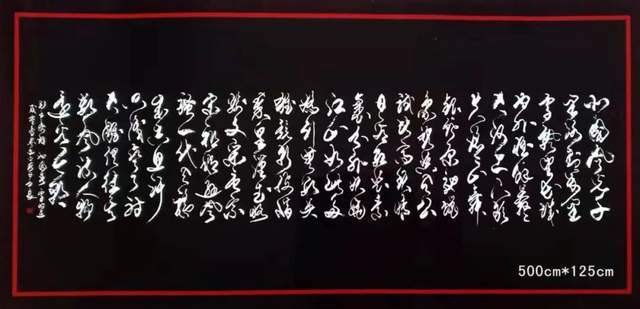 北国风光千
里冰封万里
雪飘望长城
内外惟余莽莽
大河上下顿
失滔滔山舞
银蛇原驰蜡
象欲与天公
试比高须晴
日看红装素
裹分外妖娆
江山如此多
娇引无数英
雄竞折腰惜
秦皇汉武略
输文采唐宗
宋祖稍逊风
骚一代天骄
成吉思汗
只识弯弓射
大雕俱往矣
数风流人物
还看今朝
500cm*125cm